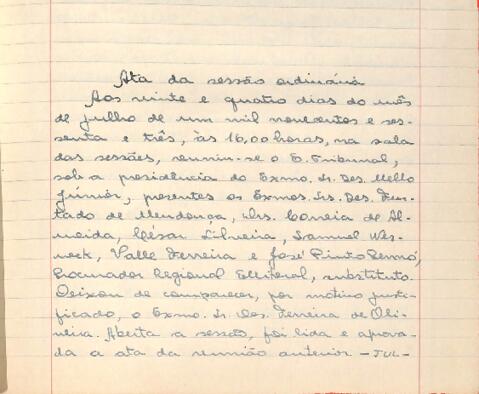 Ata da sessão ordinária
Aos vinte e quatro dias do mês
de julho de um mil novecentos e ses-
senta e três, às 16,00 horas, na sala
das sessões, reuniu-se o E. Tribunal,
sob a presidência do Exmo. Sr. Des. Mello
Júnior, presentes os Exmos. Srs. Des. Fur-
tado de Mendonça, Drs. Correia de Al-
meida, César Silveira, Samuel Wer-
neck, Valle Ferreira e José Pinto Renó,
Procurador Regional Eleitoral, substituto.
Deixou de comparecer, por motivo justi-
ficado, o Exmo. Sr. Des. Ferreira de Oli-
veira. Aberta a sessão, foi lida e aprova-
da a ata da reunião anterior. - JUL -